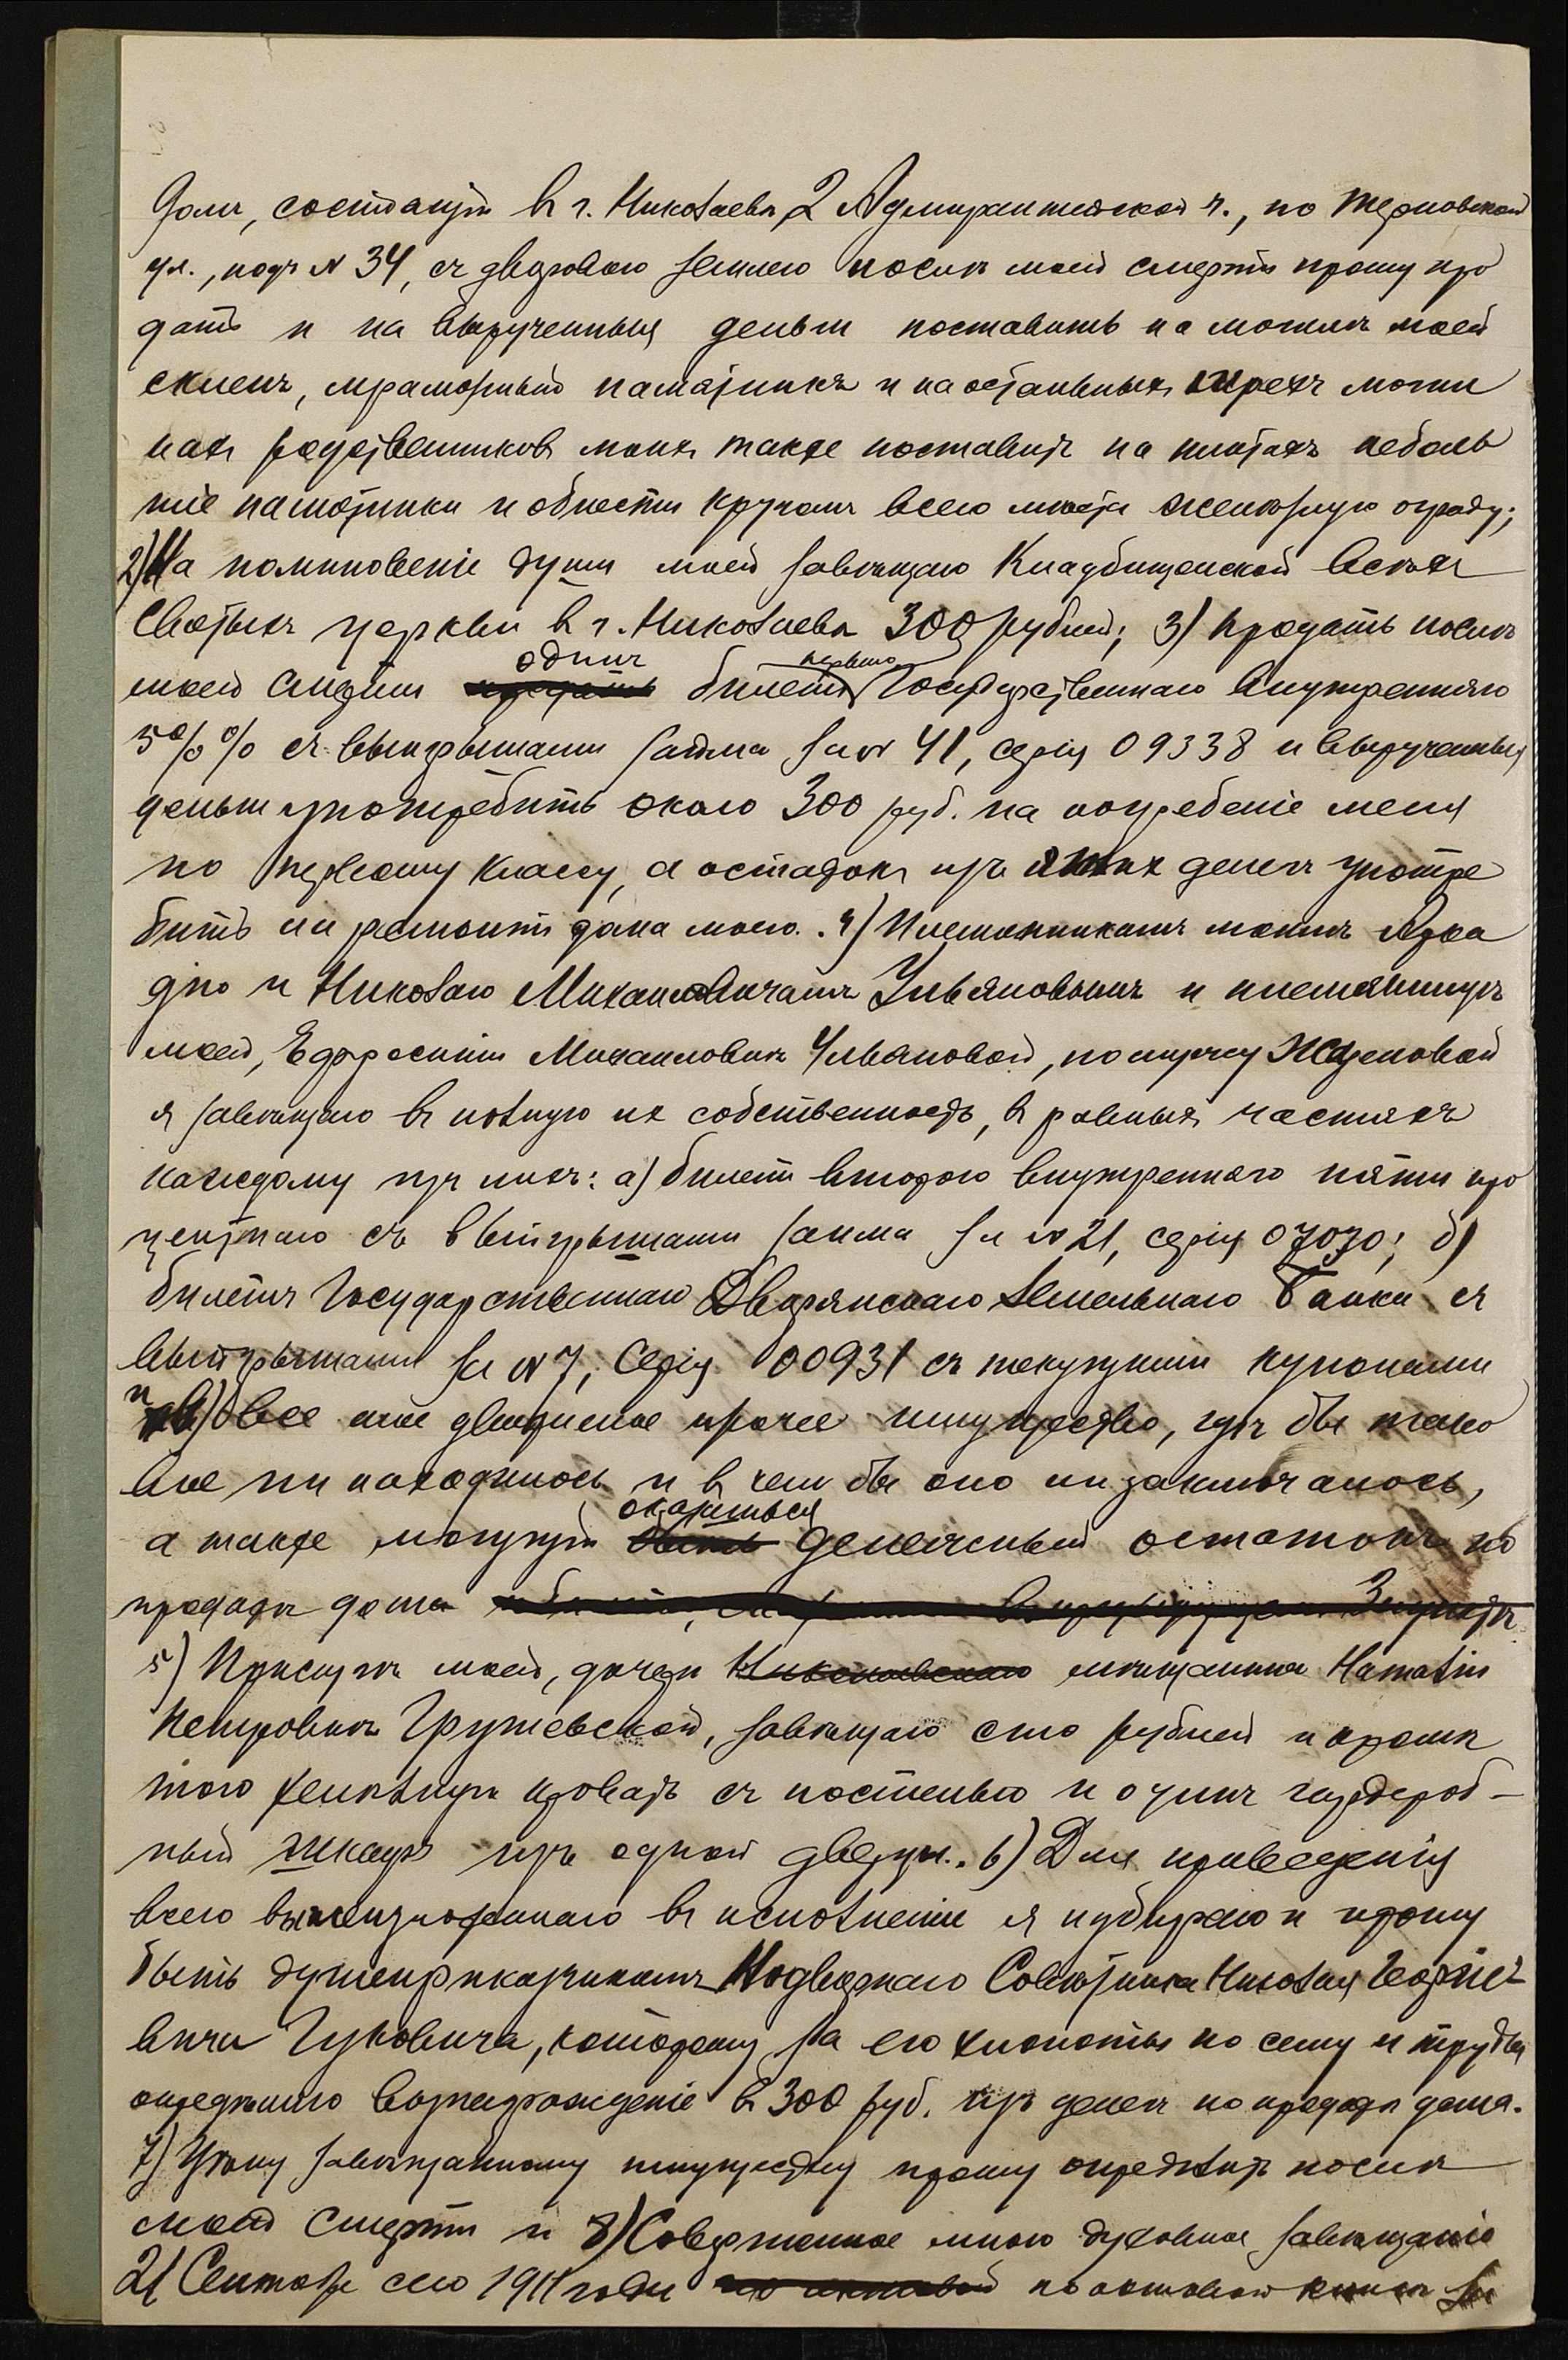 домъ, состоящій въ г. Николаевѣ, 2 Адмиралтейской ч., по Терновской
ул., подъ № 34, съ дворовою землею послѣ моей смерти прошу про
дать и на вырученныя деньги поставить на могилѣ моей
склепъ, мраморный памятникъ и на остальныхъ трехъ моги
лахъ родственниковъ моихъ также поставить на плитахъ неболь
шіе памятники и обнести кругомъ всего мѣста желѣзную ограду;
2) На поминовеніе души моей завѣщаю Кладбищенской Всѣхъ
Святыхъ церкви въ г. Николаевѣ 300 рублей; 3) продать послѣ
моей смерти продать одинъ билетъ перваго Государственнаго внутренняго
5%% съ выигрышами займа за № 41, серія 09338 и вырученныя
деньги употребить около 300 руб. на погребеніе меня
по первому классу, а остатокъ изъ этихъ денегъ употре
бить на ремонтъ дома моего. 4) Племянникамъ моимъ Арка
дію и Николаю Михайловичамъ Ульяновымъ и племянницѣ
моей, Ефросиніи Михайловнѣ Ульяновой, по мужу Жереновой
я завѣщаю въ полную их собственность, въ равныхъ частяхъ
каждому изъ нихъ: а) билетъ второго внутренняго пяти про
центнаго съ выигрышами займа за № 21, серія 07030; б)
билетъ Государственнаго Дворянскаго Земельнаго Банка съ
выигрышами за № 7, Серія 00931 съ текущими купонами
и в) все мое движимое прочее имущество, гдѣ бы тако
вое ни находилось и въ чем бы оно ни заключалось,
а также могущій быть оказаться денежный остатокъ по
продажѣ дома
5) Прислугѣ моей, дочери Николаевскаго мѣщанина Наталіи
Петровнѣ Грушевской, завѣщаю сто рублей и кромѣ
того желѣзную кровать съ постелью и одинъ гардероб-
ный шкафъ изъ одной двери. 6) Для приведенія
всего вышеизложеннаго въ исполненіе я избираю и прошу
быть душеприказчикомъ Надворнаго Совѣтника Николая Георгіе
вича Гуковича, которому за его хлопоты по сему и труды
опредѣляю вознагражденіе въ 300 руб. изъ денегъ по продажѣ дома.
7) Цѣну завѣщанному имуществу прошу опредѣлить послѣ
моей смерти и 8) Совершенное мною духовное завѣщаніе
21 Сентября сего 1911 года по актовой по актовой книгѣ за